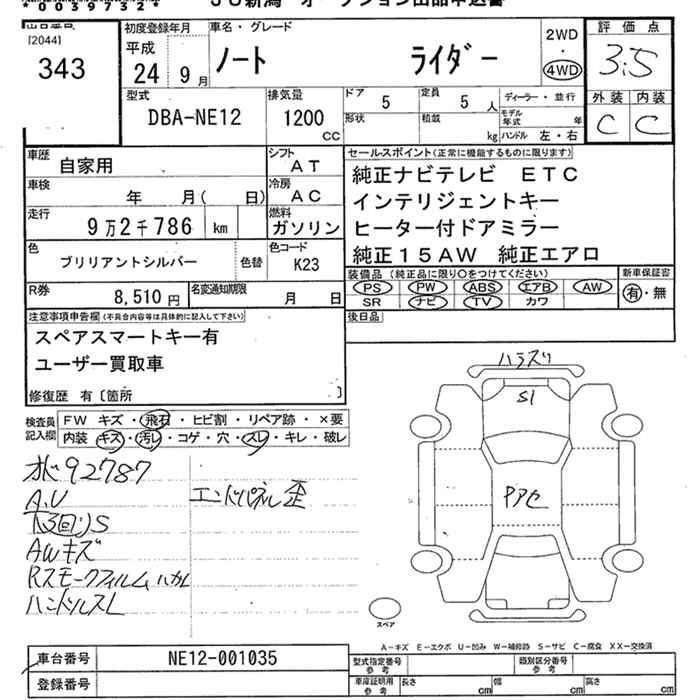 *0039732*
JU新潟 オークション出品申込書
出品番号
[2044]
343
初度登録年月
平成
24 9月
車名・グレード
ノート ライダー
2WD
・
4WD
評価点
3.5
外装 内装
C C
型式
DBA-NE12
排気量
1200
CC
ドア 5
定員 5人
ディーラー・並行
形状
積載 kg
モデル年式 年
ハンドル 左・右
車歴 自家用
シフト AT
車検 年 月( 日)
冷房 AC
走行 9万2千786 km
燃料 ガソリン
色 ブリリアントシルバー 色替
色コード K23
R券 8,510円
名変通知期限 月 日
セールスポイント(正常に機能するものに限ります)
純正ナビテレビ ETC
インテリジェントキー
ヒーター付ドアミラー
純正15AW 純正エアロ
装備品(純正品に限り○をつけてください)
PS PW ABS エアB AW
SR ナビ TV カワ
新車保証書
有・無
後日品
注意事項申告欄(不具合内容等は具体的に記入して下さい)
スペアスマートキー有
ユーザー買取車
修復歴 有〔箇所 〕
検査員記入欄
FW キズ・飛石・ヒビ割・リペア跡・×要
内装 キズ・汚レ・コゲ・穴・スレ・キレ・破レ
オド92787
A.U
エンドパネル歪
AWキズ
Rスモークフィルム ハガレ
ハンドルスレ
S1
スペア
A-キズ E-エクボ U-凹み W-補修跡 S-サビ C-腐食 XX-交換済
車台番号 NE12-001035
登録番号
型式指定番号
参考
類別区分番号
参考
車庫証明用
参考
長さ cm 幅 cm 高さ cm